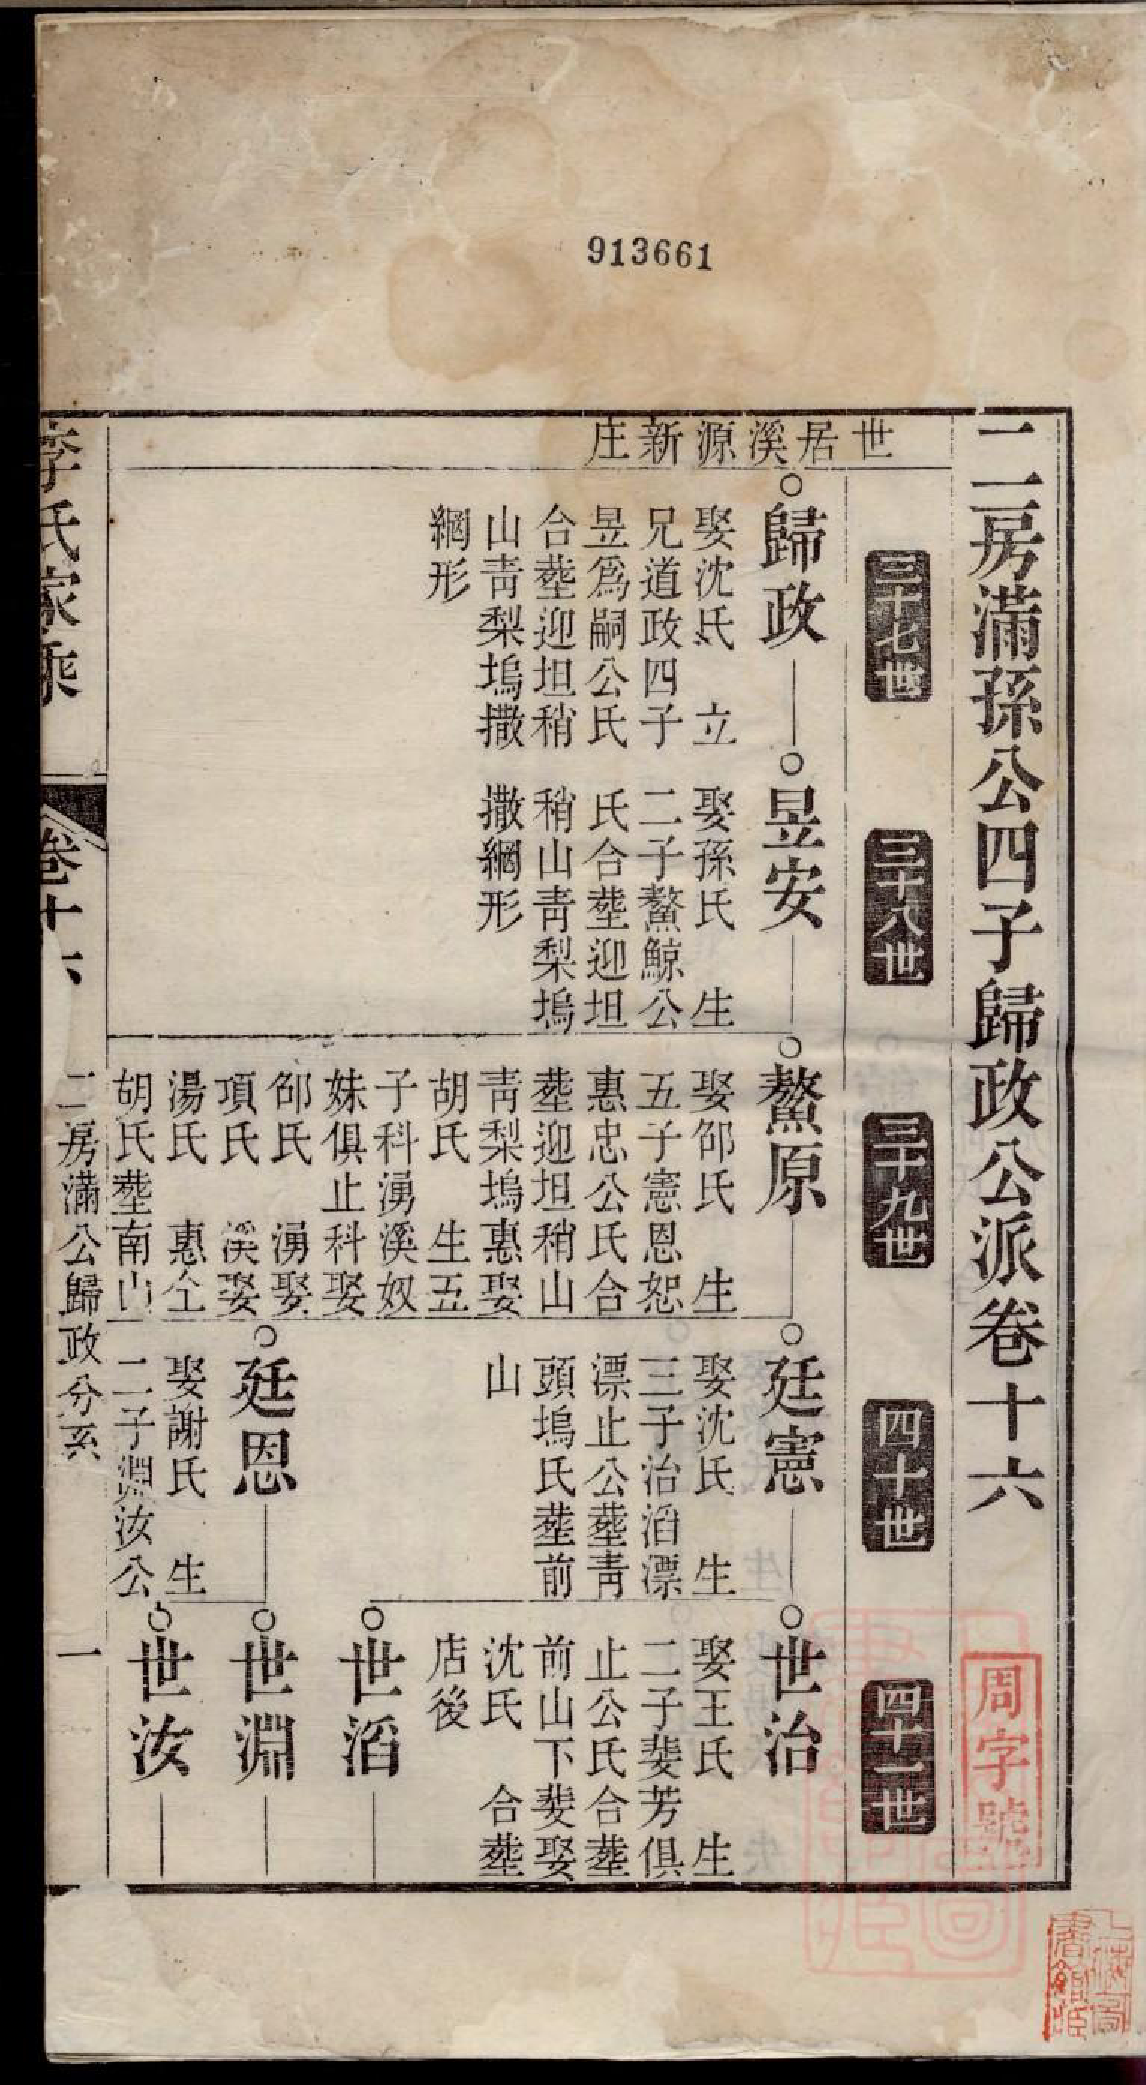 913661
二房滿孫公四子歸政公派卷十六
周字號
三十七世
三十八世
三十九世
四十世
四十一世
世居溪源新庄
歸政
娶沈氏 立
兄道政四子
昱爲嗣公氏
合塟迎坦稍
山靑梨塢撒
網形
昱安
娶孫氏 生
二子鰲鯨公
氏合塟迎坦
稍山靑梨塢
撒網形
鰲原
娶邰氏 生
五子憲恩恕
惠忠公氏合
塟迎坦稍山
靑梨塢惠娶
胡氏 生五
子科湧溪奴
妹俱止科娶
邰氏 湧娶
項氏 溪娶
湯氏 惠仝
胡氏塟南山
廷憲
娶沈氏 生
三子治滔漂
漂止公塟靑
頭塢氏塟前
山
廷恩
娶謝氏 生
二子淵汝公
世治
娶王氏 生
二子婓芳俱
止公氏合塟
前山下婓娶
沈氏 合塟
店後
世滔
世淵
世汝
李氏家乘
卷十六
二房滿公歸政分系
一